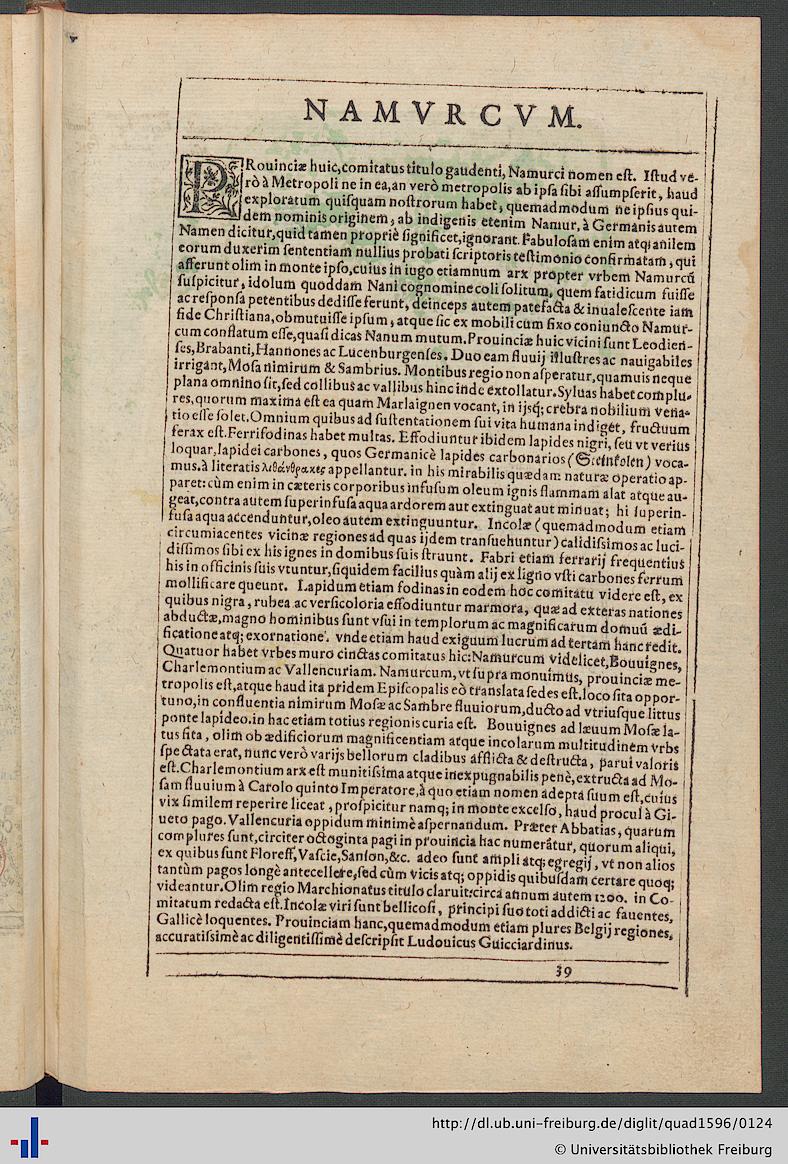 NAMVRCVM.
PRouinciæ huic,comitatus titulo gaudenti, Namurci nomen eſt. Iſtud ve-
rò à Metropoli ne in ea,an verò metropolis ab ipſa ſibi aſſumpſerit, haud
exploratum quiſquam noſtrorum habet, quemadmodum ne ipſius qui-
dem nominis originem, ab indigenis etenim Namur, à Germanis autem
Namen dicitur,quid tamen propriè ſignificet,ignorant. Fabuloſam enim atq; anilem
eorum duxerim ſententiam nullius probati ſcriptoris teſtimonio confirmatam, qui
aſſerunt olim in monte ipſo,cuius in iugo etiamnum arx propter vrbem Namurcū
ſuſpicitur, idolum quoddam Nani cognomine coli ſolitum, quem fatidicum fuiſſe
ac reſponſa petentibus dediſſe ferunt, deinceps autem patefacta & inualeſcente iam
fide Chriſtiana,obmutuiſſe ipſum, atque ſic ex mobili cum fixo coniuncto Namur-
cum conflatum eſſe,quaſi dicas Nanum mutum.Prouinciæ huic vicini ſunt Leodien-
ſes,Brabanti,Hannones ac Lucenburgenſes. Duo eam fluuij illuſtres ac nauigabiles
irrigant,Moſa nimirum & Sambrius. Montibus regio non aſperatur,quamuis neque
plana omnino ſit,ſed collibus ac vallibus hinc inde extollatur.Syluas habet complu-
res,quorum maxima eſt ea quam Marlaignen vocant, in ijsq́; crebra nobilium vena-
tio eſſe ſolet.Omnium quibus ad ſuſtentationem ſui vita humana indiget, fructuum
ferax eſt.Ferrifodinas habet multas. Effodiuntur ibidem lapides nigri, ſeu vt verius
loquar,lapidei carbones, quos Germanicè lapides carbonarios (Steinkolen) voca-
mus.à literatis λιθάνθρακες appellantur. in his mirabilis quædam naturæ operatio ap-
paret: cùm enim in cæteris corporibus infuſum oleum ignis flammam alat atque au-
geat,contra autem ſuperinfuſa aqua ardorem aut extinguat aut minuat; hi ſuperin-
fuſa aqua accenduntur,oleo autem extinguuntur. Incolæ (quemadmodum etiam
circumiacentes vicinæ regiones ad quas ijdem tranſuehuntur) calidiſsimos ac luci-
diſſimos ſibi ex his ignes in domibus ſuis ſtruunt. Fabri etiam ferrarij frequentius
his in officinis ſuis vtuntur,ſiquidem facilius quàm alij ex ligno vſti carbones ferrum
mollificare queunt. Lapidum etiam fodinas in eodem hoc comitatu videre eſt, ex
quibus nigra, rubea ac verſicoloria effodiuntur marmora, quæ ad exteras nationes
abductæ,magno hominibus ſunt vſui in templorum ac magnificarum domuū ædi-
ficatione atq; exornatione. vnde etiam haud exiguum lucrum ad terram hanc redit.
Quatuor habet vrbes muro cinctas comitatus hic:Namurcum videlicet,Bouuignes,
Charlemontium ac Vallencuriam. Namurcum,vt ſupra monuimus, prouinciæ me-
tropolis eſt,atque haud ita pridem Epiſcopalis eò translata ſedes eſt.loco ſita oppor-
tuno,in confluentia nimirum Moſæ ac Sambre fluuiorum,ducto ad vtriuſque littus
ponte lapideo.in hac etiam totius regionis curia eſt. Bouuignes ad læuum Moſæ la-
tus ſita, olim ob ædificiorum magnificentiam atque incolarum multitudinem vrbs
ſpectata erat, nunc verò varijs bellorum cladibus afflicta & deſtructa, parui valoris
eſt.Charlemontium arx eſt munitiſsima atque inexpugnabilis penè,extructa ad Mo-
ſam fluuium à Carolo quinto Imperatore,à quo etiam nomen adepta ſuum eſt,cuius
vix ſimilem reperire liceat, proſpicitur namq; in monte excelſo, haud procul à Gi-
ueto pago. Vallencuria oppidum minimè aſpernandum. Præter Abbatias, quarum
complures ſunt,circiter octoginta pagi in prouincia hac numerātur, quorum aliqui,
ex quibus ſunt Floreff,Vaſcie,Sanſon,&c. adeo ſunt ampli atq; egregij, vt non alios
tantùm pagos longè antecellere,ſed cùm vicis atq; oppidis quibuſdam certare quoq;
videantur.Olim regio Marchionatus titulo claruit:circa annum autem 1200. in Co-
mitatum redacta eſt.Incolæ viri ſunt bellicoſi, principi ſuo toti addicti ac fauentes,
Gallicè loquentes. Prouinciam hanc,quemadmodum etiam plures Belgij regiones,
accuratiſsimè ac diligentiſſimè deſcripſit Ludouicus Guicciardinus.
39
http://dl.ub.uni-freiburg.de/diglit/quad1596/0124
© Universitätsbibliothek Freiburg